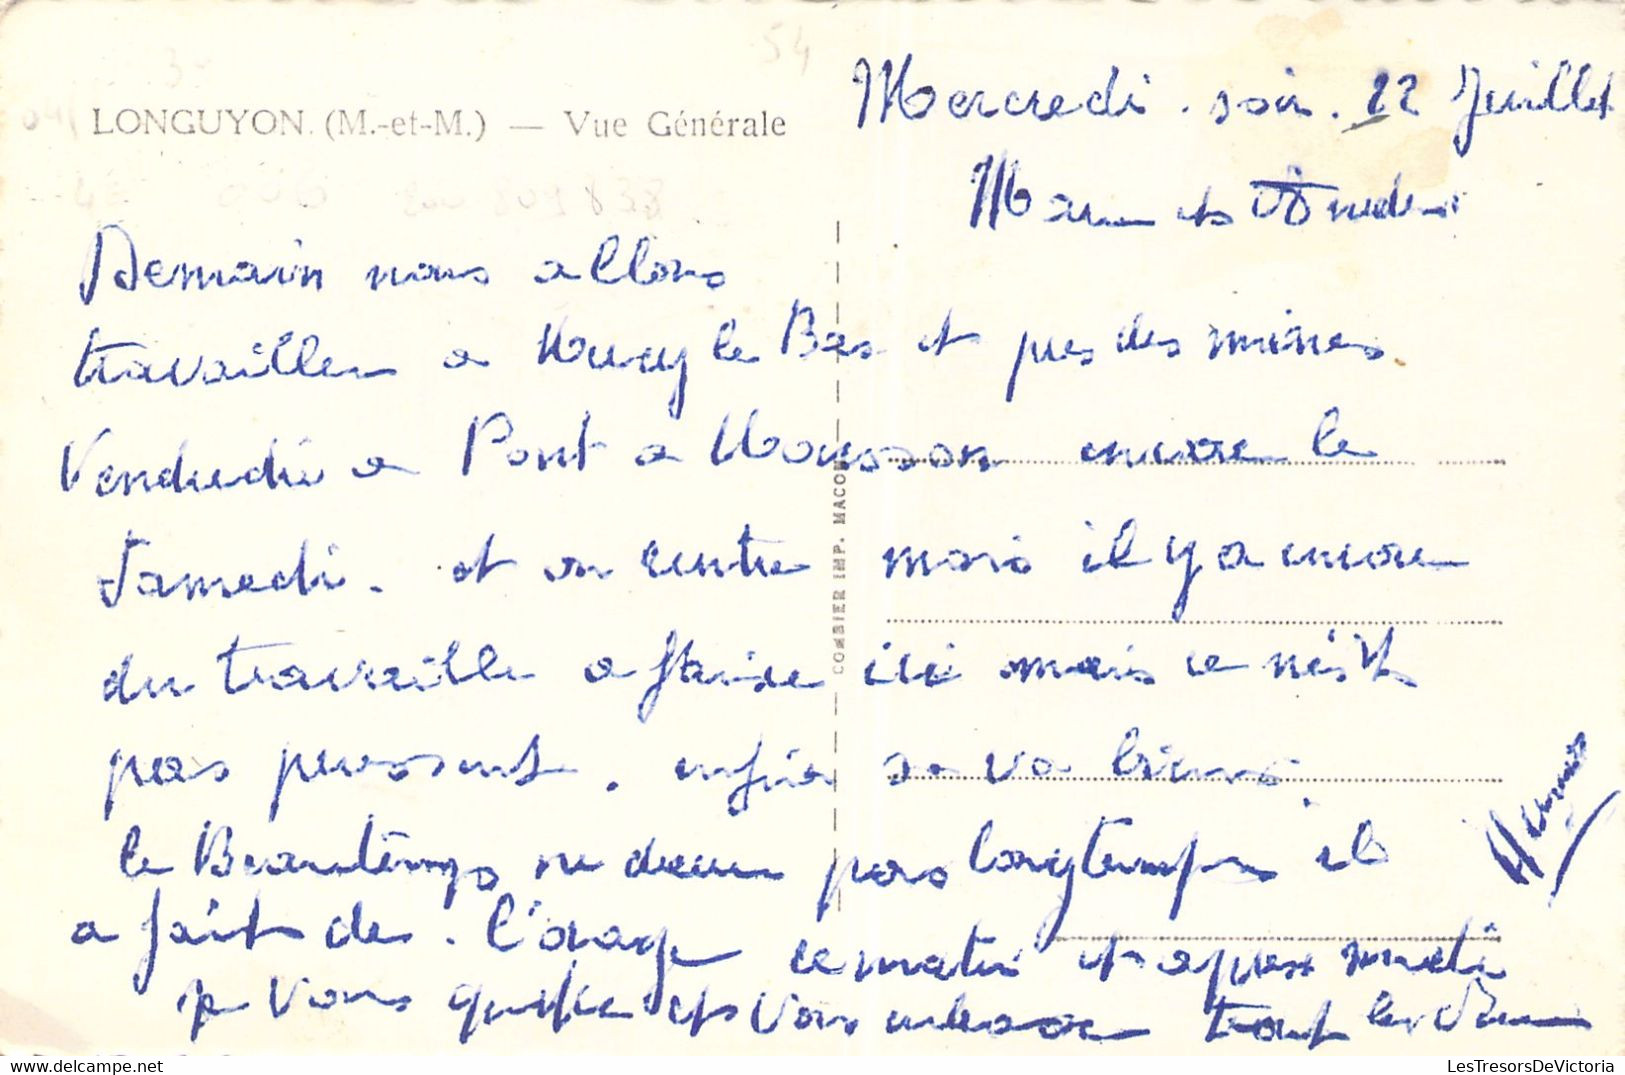 54
LONGUYON. (M.-et-M.) — Vue Générale
Mercredi . soir . 22 Juillet
et
Demain nous allons
travailler a le Bas et pres des mines
Vendredi a Pont a Mousson encore le
Samedi . et on rentre mais il y a encore
du travaille a faire ici mais ce n'est
pas pressent . enfin sa va biens .
le Beautemps ne dure pas longtemps il
a fait de . l'orage ce matin et apres midi
je vous quitte et vous embrasse tout les
COMBIER IMP. MACON
LesTresorsDeVictoria